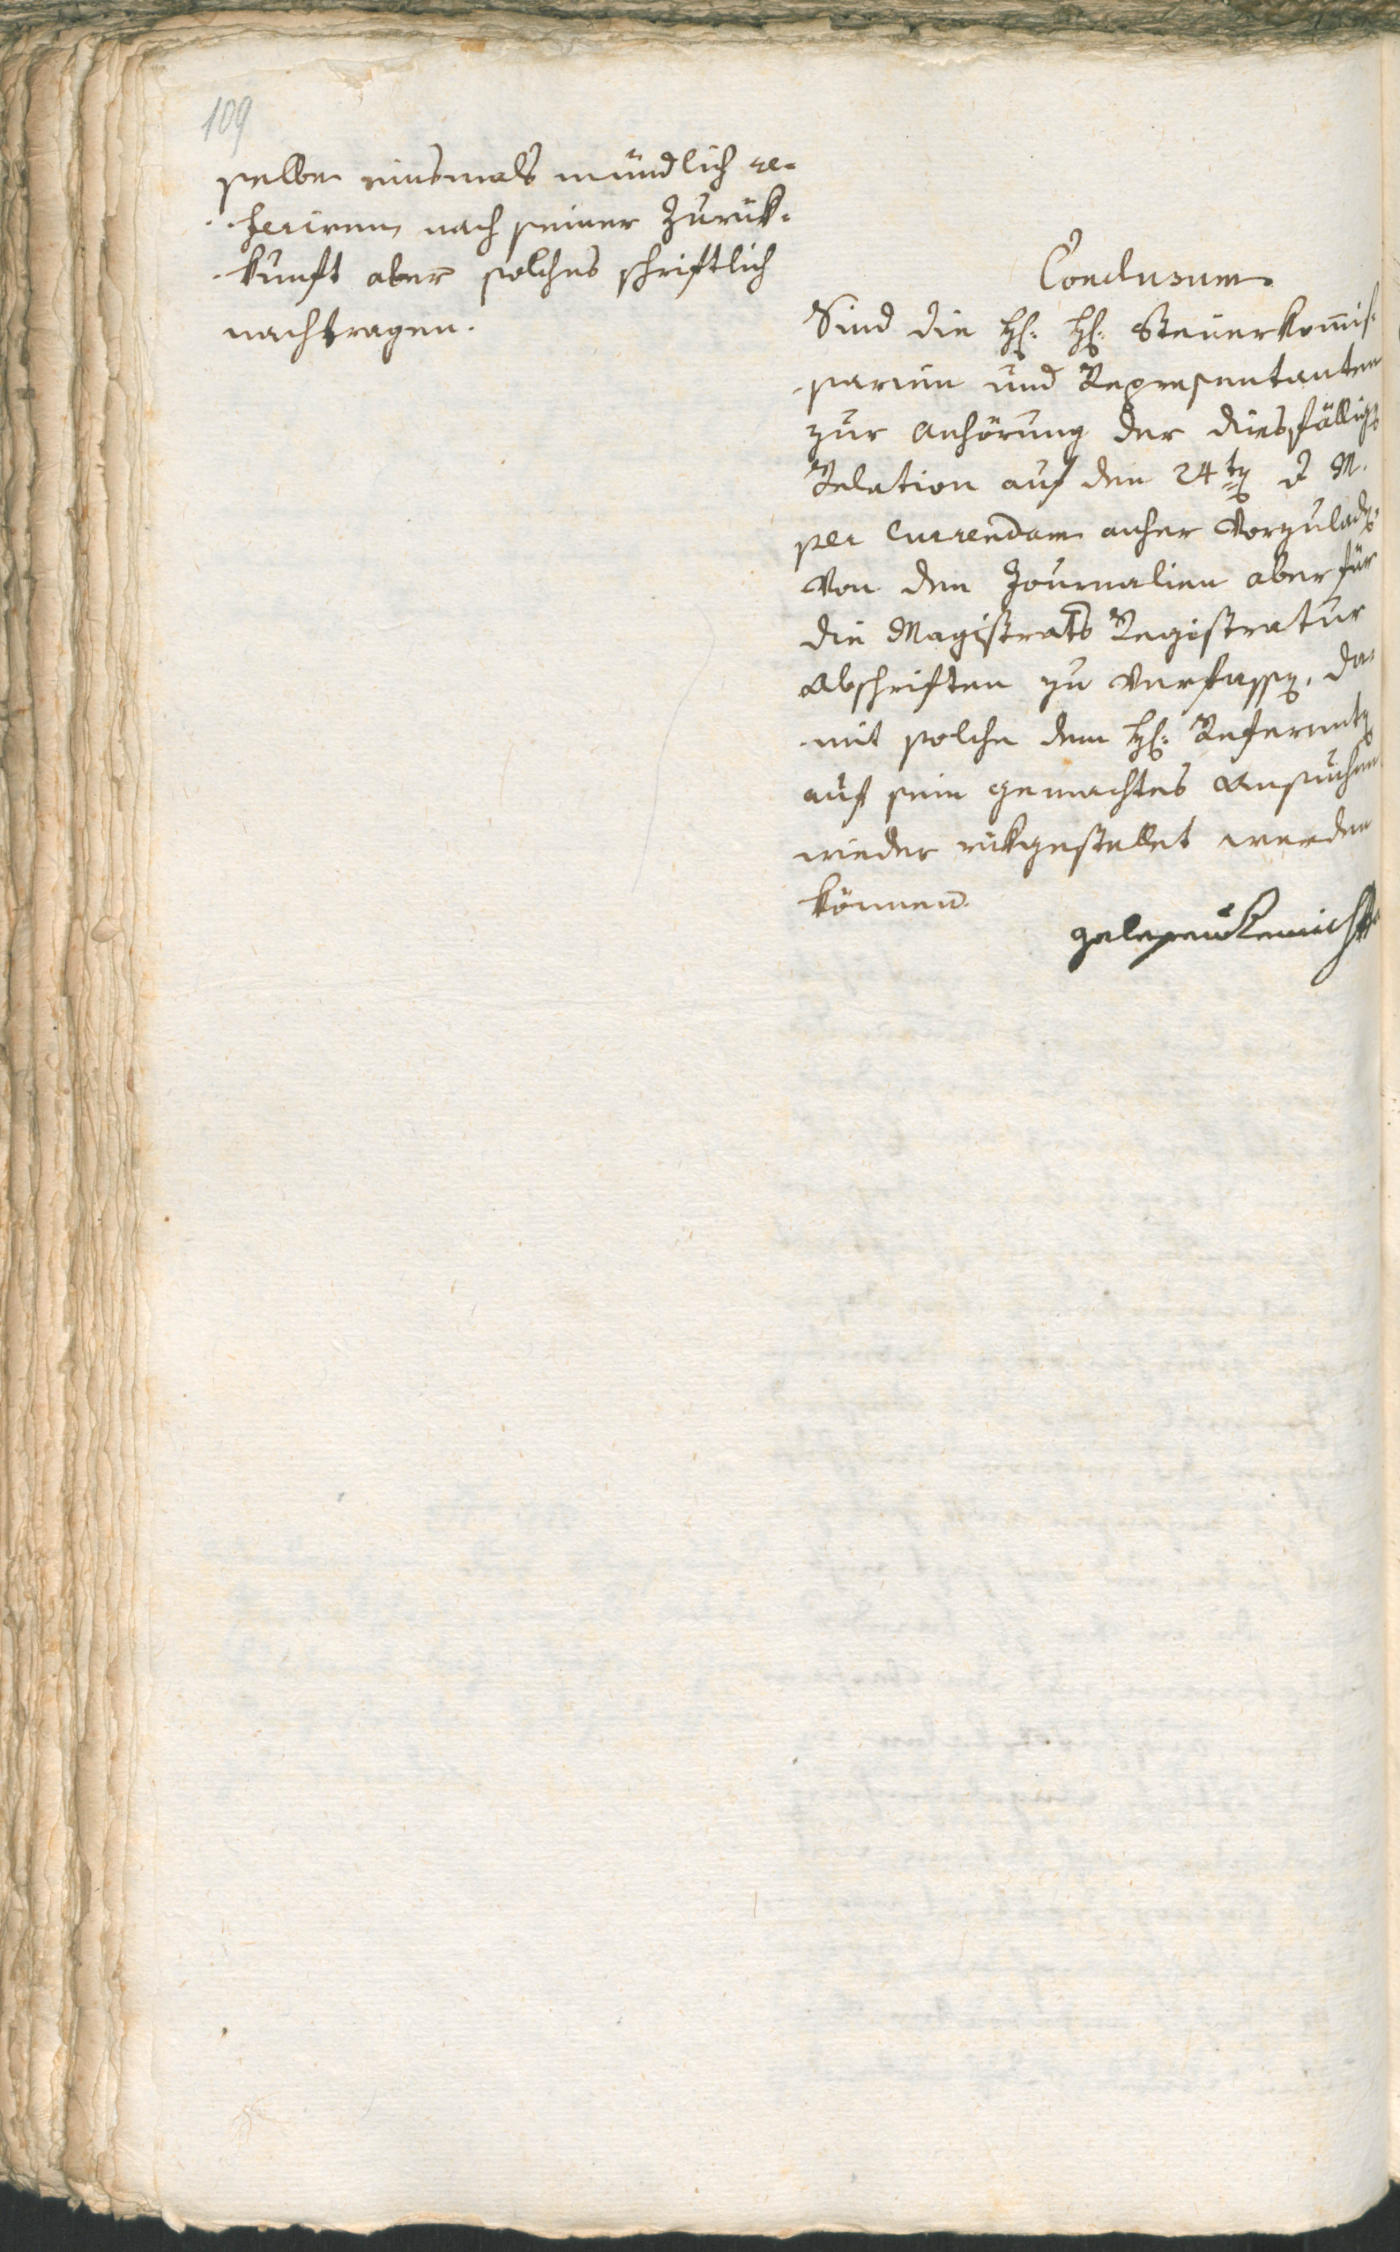 109
selbe einsmals mündlich re-
feriren, nach seiner Zurük-
kunft aber solches schriftlich
nachtragen.
Conclusum
Sind die H. H. Steuerkom̄is-
sarien und Repraesentanten
zur Anhörung der diesfällig
Relation auf den 24ten d. M.
per Currendam anher vorzuladen,
Von den Journalien aber für
die Magistrats Registratur
Abschriften zu verfassen, da-
mit solche dem H. Referenten
auf sein gemachtes Ansuchen
wieder rükgestellet werden
können.
gelesen